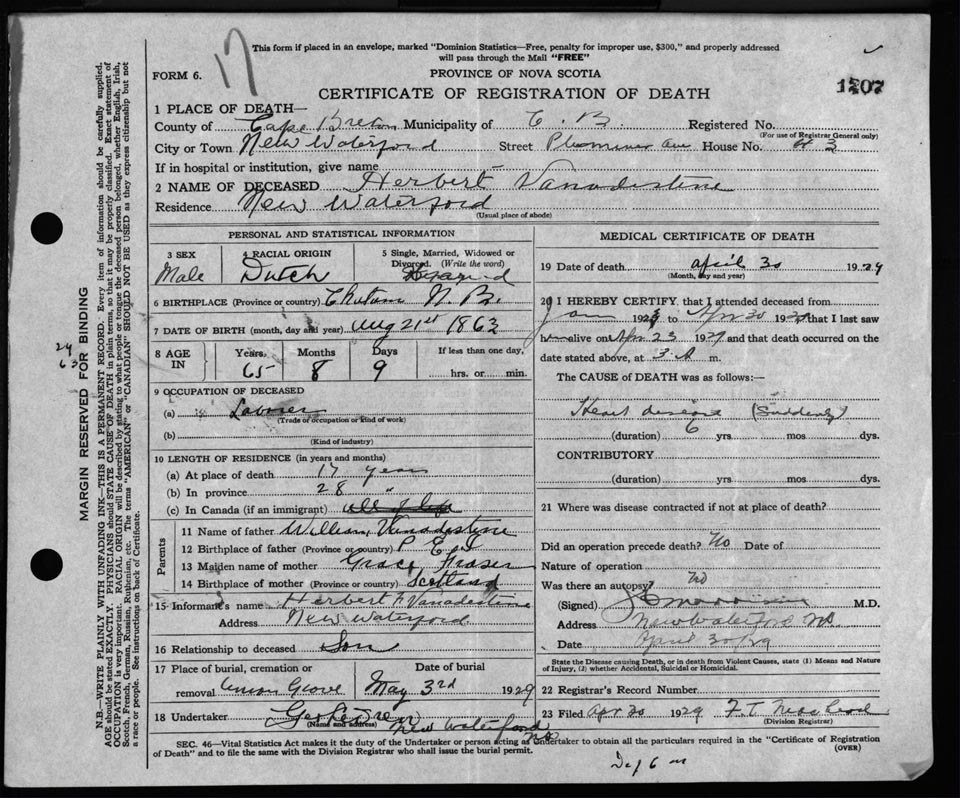 17
This form if placed in an envelope, marked "Dominion Statistics—Free, penalty for improper use, $300," and properly addressed
will pass through the Mail "FREE"
FORM 6.
PROVINCE OF NOVA SCOTIA
1207
CERTIFICATE OF REGISTRATION OF DEATH
1 PLACE OF DEATH—
County of Cape Breton Municipality of C. B. Registered No.
(For use of Registrar General only)
City or Town New Waterford Street Plummer Ave House No. # 3
If in hospital or institution, give name
2 NAME OF DECEASED Herbert Vanadestine
Residence New Waterford
(Usual place of abode)
PERSONAL AND STATISTICAL INFORMATION
3 SEX Male
4 RACIAL ORIGIN Dutch
5 Single, Married, Widowed or Divorced. (Write the word)
6 BIRTHPLACE (Province or country) Chatam N. B.
7 DATE OF BIRTH (month, day and year) Aug 21st 1863
8 AGE IN Years 65 Months 8 Days 9 If less than one day, hrs. or min.
9 OCCUPATION OF DECEASED
(a) Laborer
(Trade or occupation or kind of work)
(b)
(Kind of industry)
10 LENGTH OF RESIDENCE (in years and months)
(a) At place of death 17 years
(b) In province 28 "
(c) In Canada (if an immigrant) all of life
Parents
11 Name of father William Vanadestine
12 Birthplace of father (Province or country) P E I
13 Maiden name of mother Grace Fraser
14 Birthplace of mother (Province or country) Scotland
15 Informant's name Herbert F Vanadestine
Address New Waterford
16 Relationship to deceased Son
17 Place of burial, cremation or removal Union Grove
Date of burial May 3rd 1929
18 Undertaker
(Name and address) New Waterford NS
MEDICAL CERTIFICATE OF DEATH
19 Date of death april 30 1929
(Month, day and year)
20 I HEREBY CERTIFY, that I attended deceased from
Jan 192 to Apr 30 192 that I last saw
h alive on Apr 23 1929 and that death occurred on the
date stated above, at 3 A m.
The CAUSE of DEATH was as follows:—
Heart disease (Suddenly)
(duration) 6 yrs. mos. dys.
CONTRIBUTORY
(duration) yrs. mos. dys.
21 Where was disease contracted if not at place of death?
Did an operation precede death? No Date of
Nature of operation
Was there an autopsy? no
(Signed) M.D.
Address New Waterford NS
Date April 30/29
State the Disease causing Death, or in death from Violent Causes, state (1) Means and Nature
of Injury, (2) whether Accidental, Suicidal or Homicidal.
22 Registrar's Record Number
23 Filed Apr 30 1929 F. T. MacLeod
(Division Registrar)
SEC. 46—Vital Statistics Act makes it the duty of the Undertaker or person acting as Undertaker to obtain all the particulars required in the "Certificate of Registration
of Death" and to file the same with the Division Registrar who shall issue the burial permit.
(OVER)
MARGIN RESERVED FOR BINDING
N.B.—WRITE PLAINLY WITH UNFADING INK—THIS IS A PERMANENT RECORD. Every item of information should be carefully supplied.
AGE should be stated EXACTLY. PHYSICIANS should STATE CAUSE OF DEATH in plain terms, so that it may be properly classified. Exact statement of
OCCUPATION is very important. RACIAL ORIGIN will be described by stating to what people or tongue the deceased person belonged, whether English, Irish,
Scotch, French, German, Russian, Ruthenian, etc. The terms "AMERICAN" or "CANADIAN" SHOULD NOT BE USED as they express citizenship but not
a race or people. See instructions on back of Certificate.